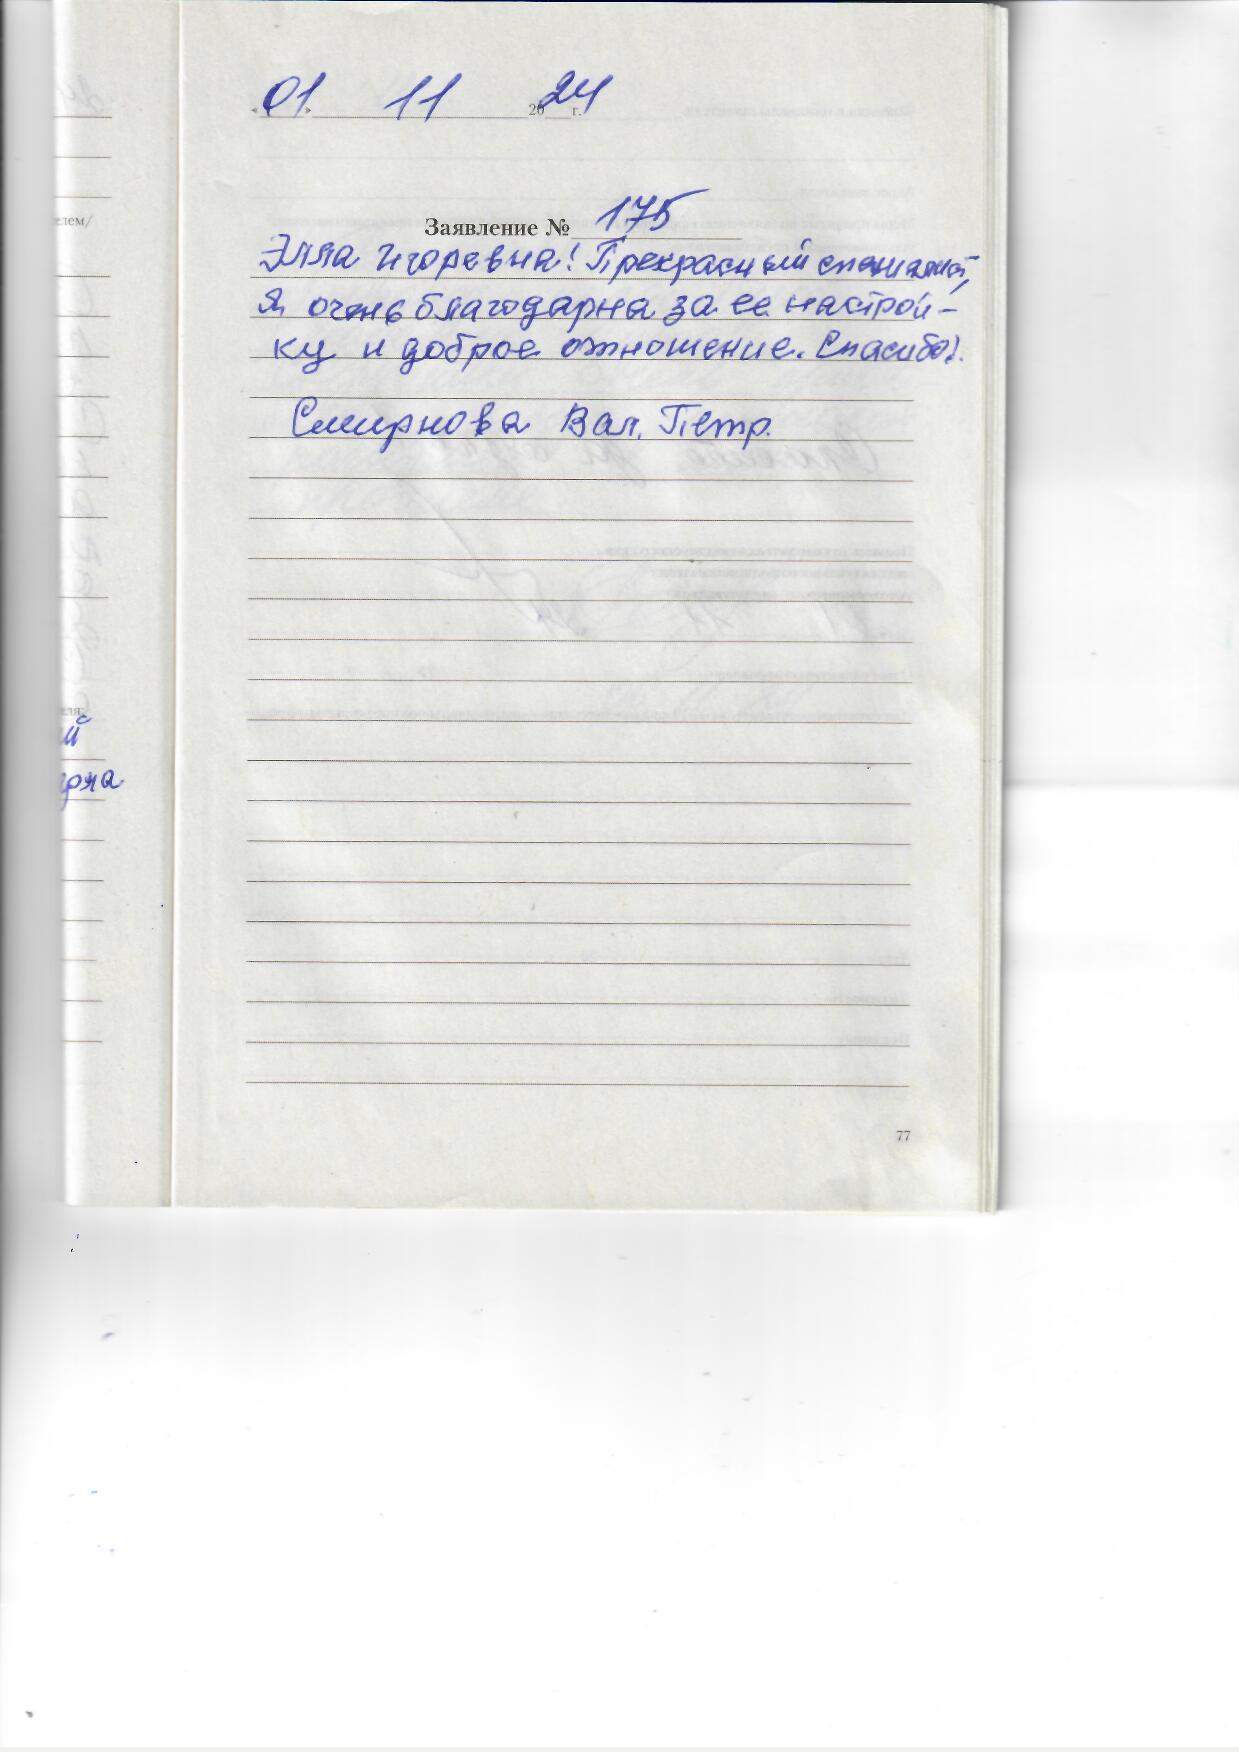 «01» 11 2024 г.
Заявление № 175
Элла Игоревна! Прекрасный специалист,
Я очень благодарна за ее настрой-
ку и доброе отношение. Спасибо!
Смирнова Вал. Петр.
елем/
еля:
ый
арна
77